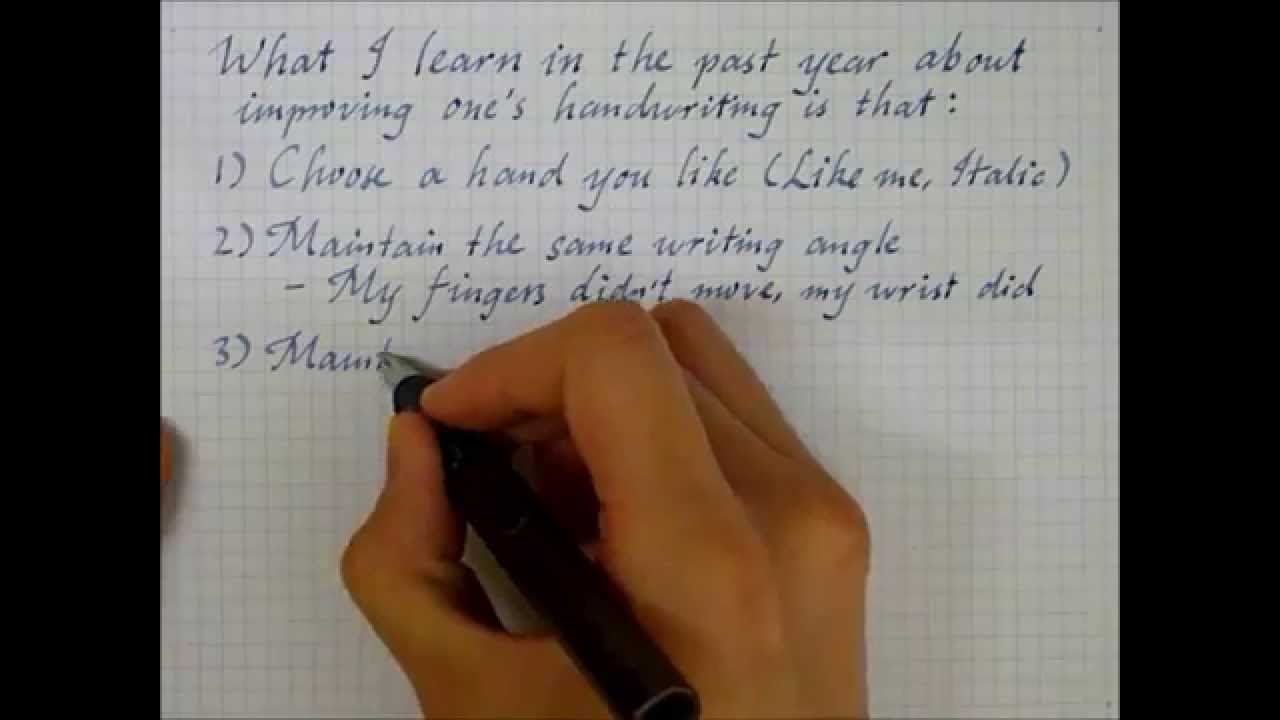 What I learn in the past year about
improving one's handwriting is that:
1) Choose a hand you like (Like me, Italic)
2) Maintain the same writing angle
- My fingers didn't move, my wrist did
3) Maint